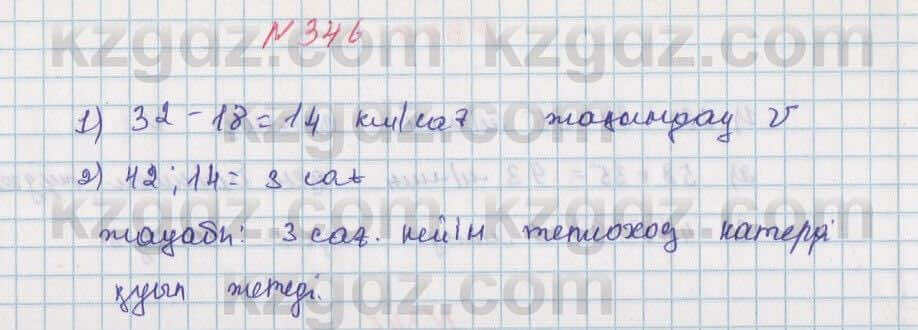 № 346
1) 32 - 18 = 14 км/сағ жақындау v
2) 42 : 14 = 3 сағ
жауабы: 3 сағ. кейін теплоход катерді
қуып жетеді.
kzgdz.com kzgdz.com
kzgdz.com kzgdz.com
kzgdz.com kzgdz.com
kzgdz.com kzgdz.com